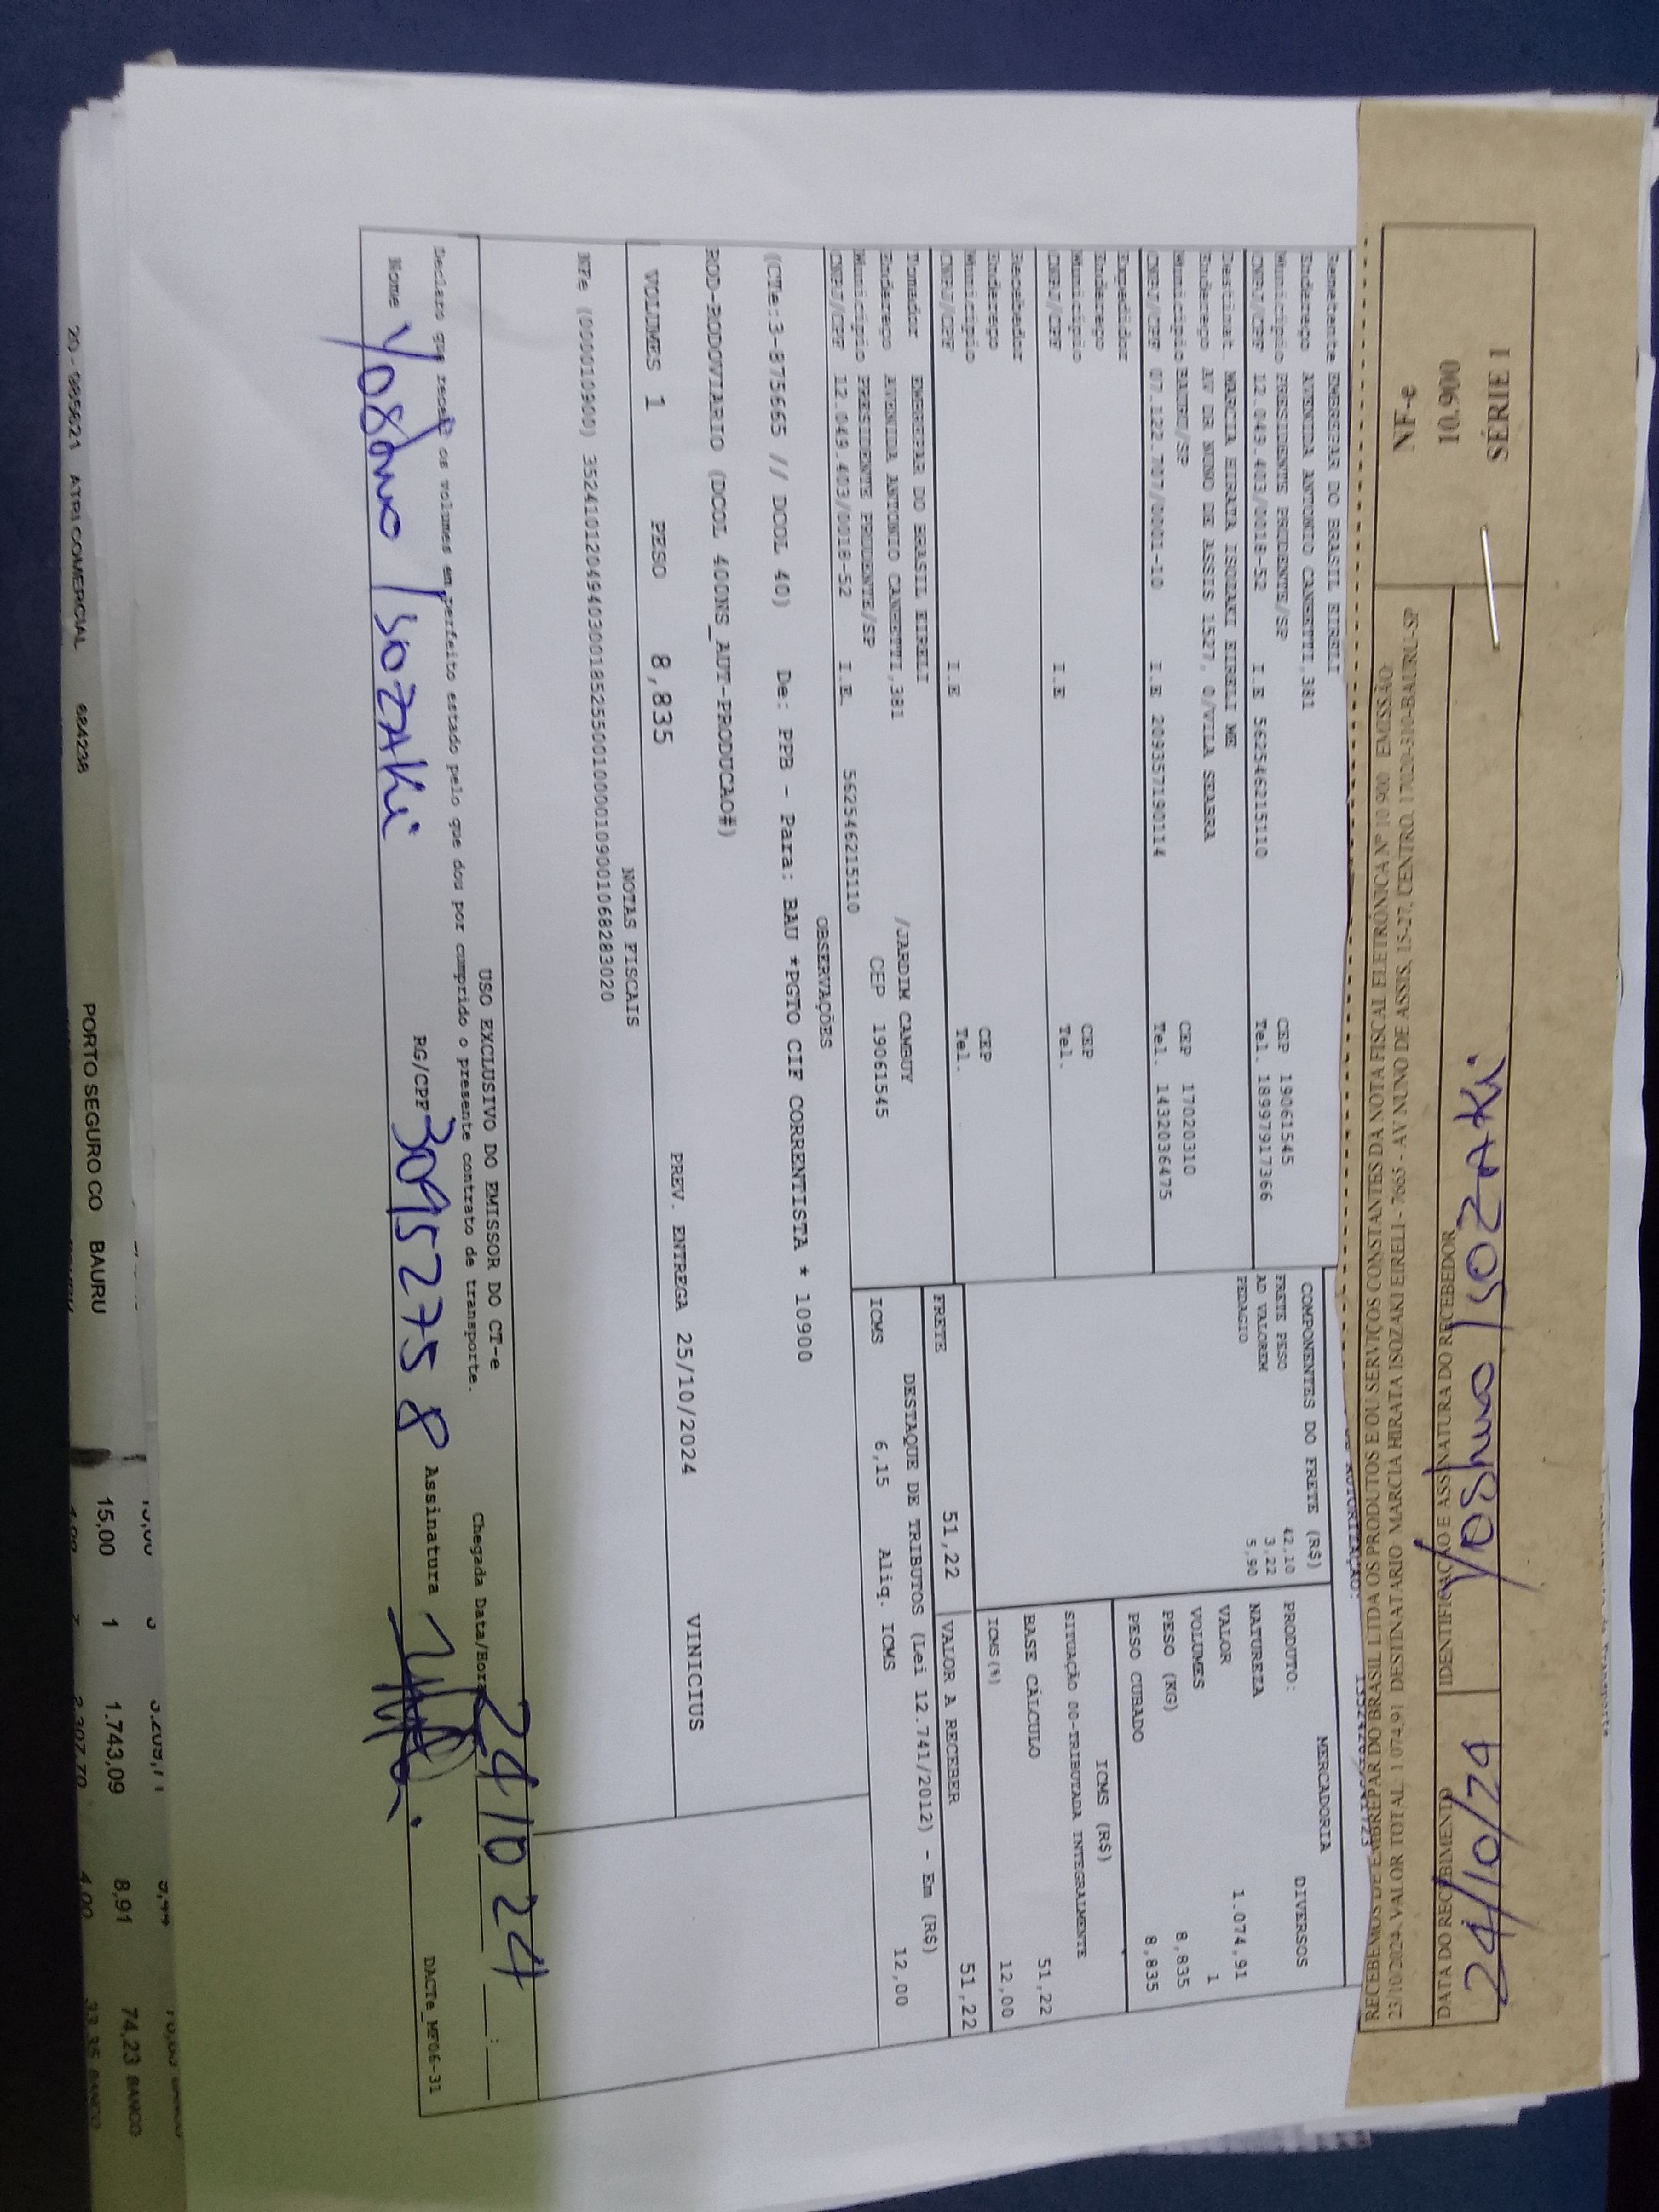 NF-e
10.900
SÉRIE 1
RECEBEMOS DE EMBREPAR DO BRASIL LTDA OS PRODUTOS E OU SERVIÇOS CONSTANTES DA NOTA FISCAL ELETRÔNICA Nº 10.900 EMISSÃO:
23/10/2024 VALOR TOTAL: 1.074,91 DESTINATARIO MARCIA HIRATA ISOZAKI EIRELI - 7665 - AV NUNO DE ASSIS, 15-27, CENTRO, 17020-310-BAURU-SP
DATA DO RECEBIMENTO
24/10/24
IDENTIFICAÇÃO E ASSINATURA DO RECEBEDOR
Yoshuo ISOZAKi
Remetente EMBREPAR DO BRASIL EIRELI
Endereço AVENIDA ANTONIO CANHETTI,381
Município PRESIDENTE PRUDENTE/SP CEP 19061545
CNPJ/CPF 12.049.403/0018-52 I.E 562546215110 Tel. 18997917366
Destinat. MARCIA HIRATA ISOZAKI EIRELI ME
Endereço AV DE NUNO DE ASSIS 1527, 0/VILA SEABRA
Município BAURU/SP CEP 17020310
CNPJ/CPF 07.122.707/0001-10 I.E 209357190114 Tel. 1432036475
Expedidor
Endereço
Município CEP
CNPJ/CPF I.E Tel.
Recebedor
Endereço
Município CEP
CNPJ/CPF I.E Tel.
Tomador EMBREPAR DO BRASIL EIRELI
Endereço AVENIDA ANTONIO CANHETTI,381 /JARDIM CAMBUY
Município PRESIDENTE PRUDENTE/SP CEP 19061545
CNPJ/CPF 12.049.403/0018-52 I.E. 562546215110
COMPONENTES DO FRETE (R$)
FRETE PESO 42,10
AD VALOREM 3,22
PEDAGIO 5,90
MERCADORIA
PRODUTO: DIVERSOS
NATUREZA
VALOR 1.074,91
VOLUMES 1
PESO (KG) 8,835
PESO CUBADO 8,835
ICMS (R$)
SITUAÇÃO 00-TRIBUTADA INTEGRALMENTE
BASE CÁLCULO 51,22
ICMS(%) 12,00
FRETE 51,22 VALOR A RECEBER 51,22
DESTAQUE DE TRIBUTOS (Lei 12.741/2012) - Em (R$)
ICMS 6,15 Aliq. ICMS 12,00
OBSERVAÇÕES
(CTe:3-875665 // DCOL 40) De: PPB - Para: BAU *PGTO CIF CORRENTISTA * 10900
ROD-RODOVIARIO (DCOL 400NS_AUT-PRODUCAO#)
VOLUMES 1 PESO 8,835 PREV. ENTREGA 25/10/2024 VINICIUS
NOTAS FISCAIS
NFe (000010900) 35241012049403001852550010000109001068283020
USO EXCLUSIVO DO EMISSOR DO CT-e
Declaro que recebi os volumes em perfeito estado pelo que dou por cumprido o presente contrato de transporte.
Chegada Data/Hora 24 10 24 :
Nome Yoshuo ISOZAKi RG/CPF 30952758 Assinatura
DACTe_MF06-31
15,00 1 1.743,09 8,91 74,23 BANCO
20 - 985621 ATRI COMERCIAL 684238 PORTO SEGURO CO BAURU